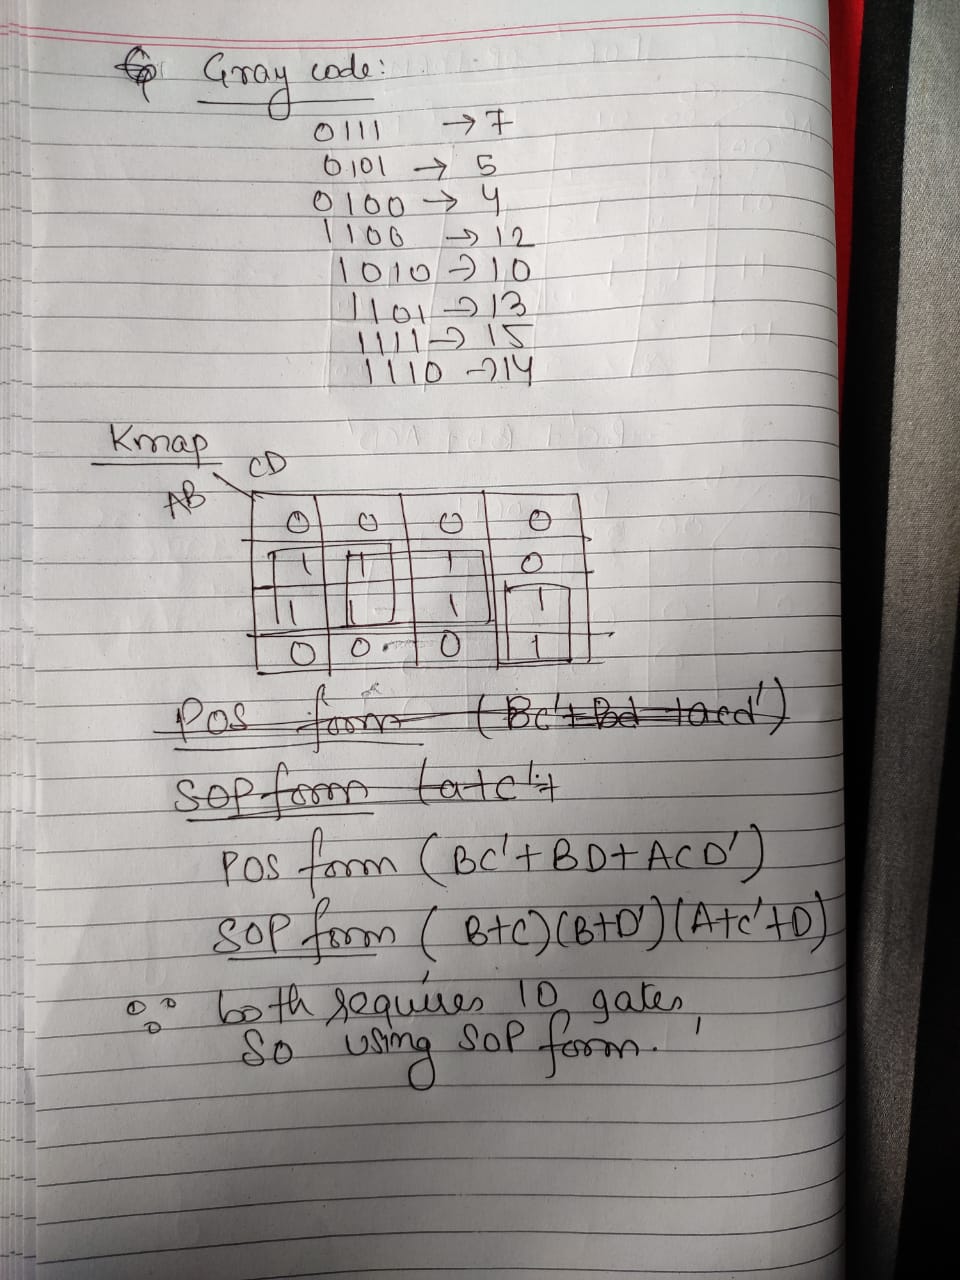 Gray code:
0111 → 7
0101 → 5
0100 → 4
1100 → 12
1010 → 10
1101 → 13
1111 → 15
1110 → 14
Kmap
CD
AB
0 0 0 0
1 1 1 0
1 1 1 1
0 0 0 1
POS form (Bc'+Bd+acd')
SOP form (a+c'+
POS form (BC'+BD+ACD')
SOP form (B+C)(B+D')(A+C'+D)
both requires 10 gates,
So using SOP form.